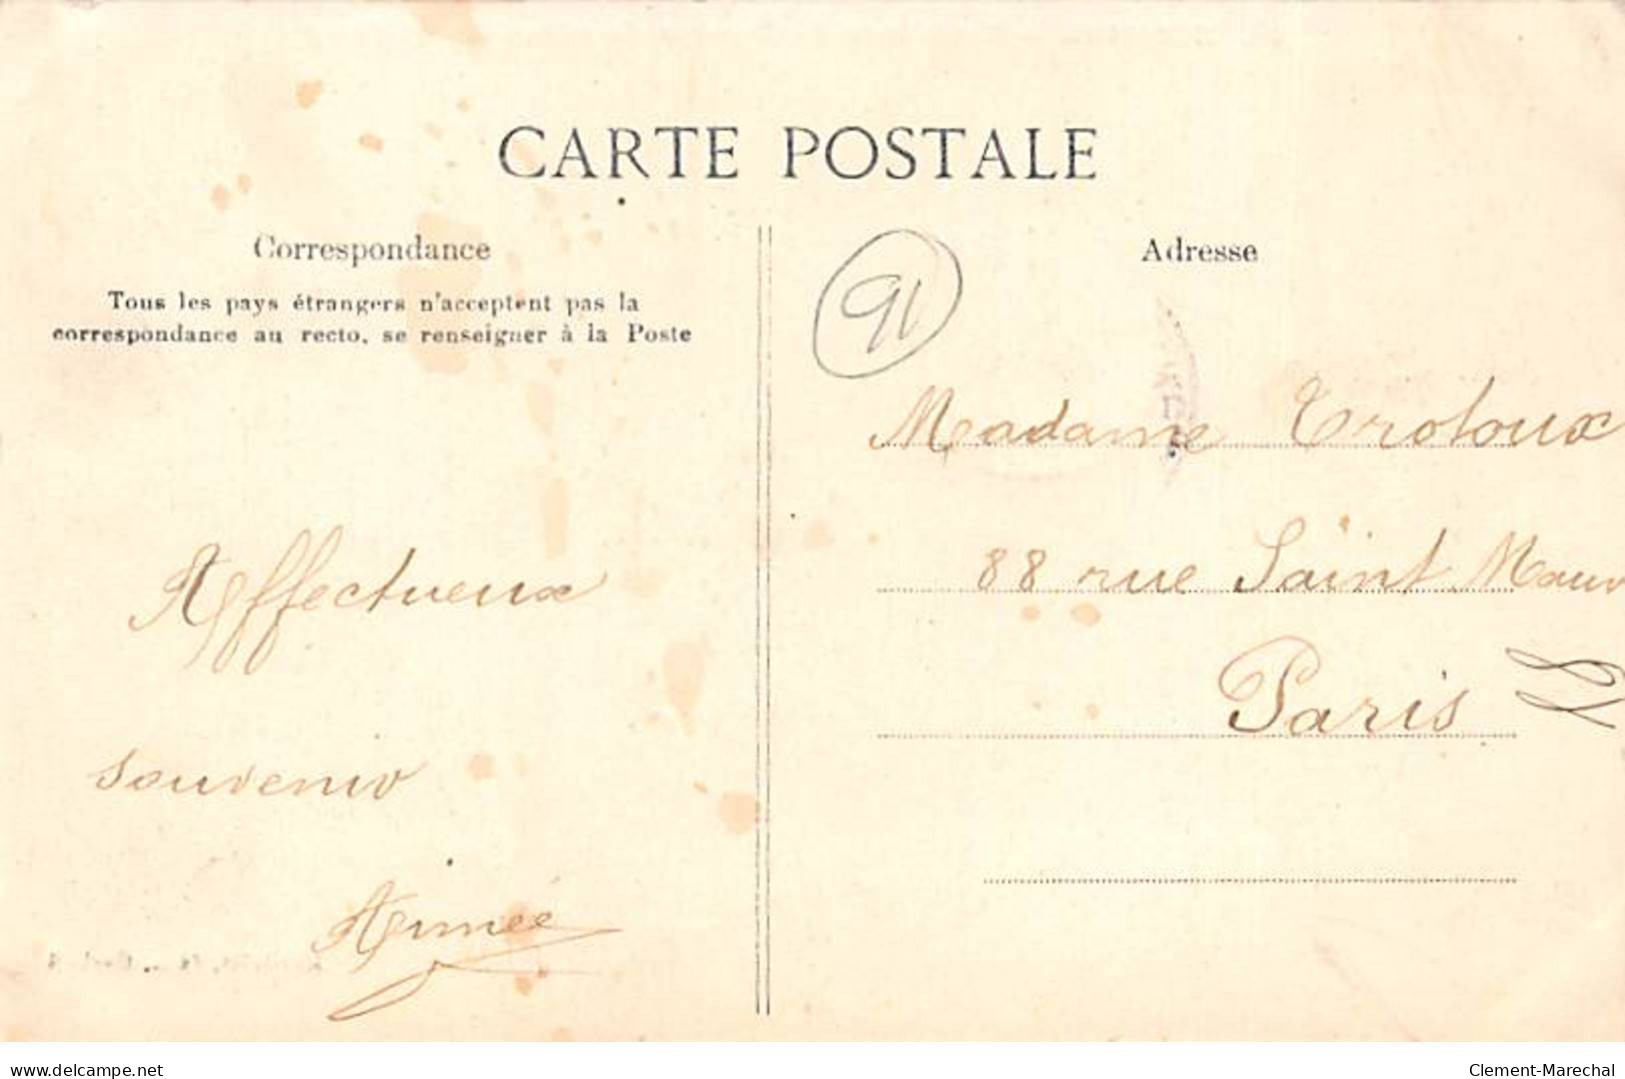 CARTE POSTALE
Correspondance
Tous les pays étrangers n'acceptent pas la
correspondance au recto, se renseigner à la Poste
Affectueux
souvenir
Aimée
Adresse
91
Madame Trotoux
88 rue Saint Maur
Paris
delcampe.net
Clement-Marechal